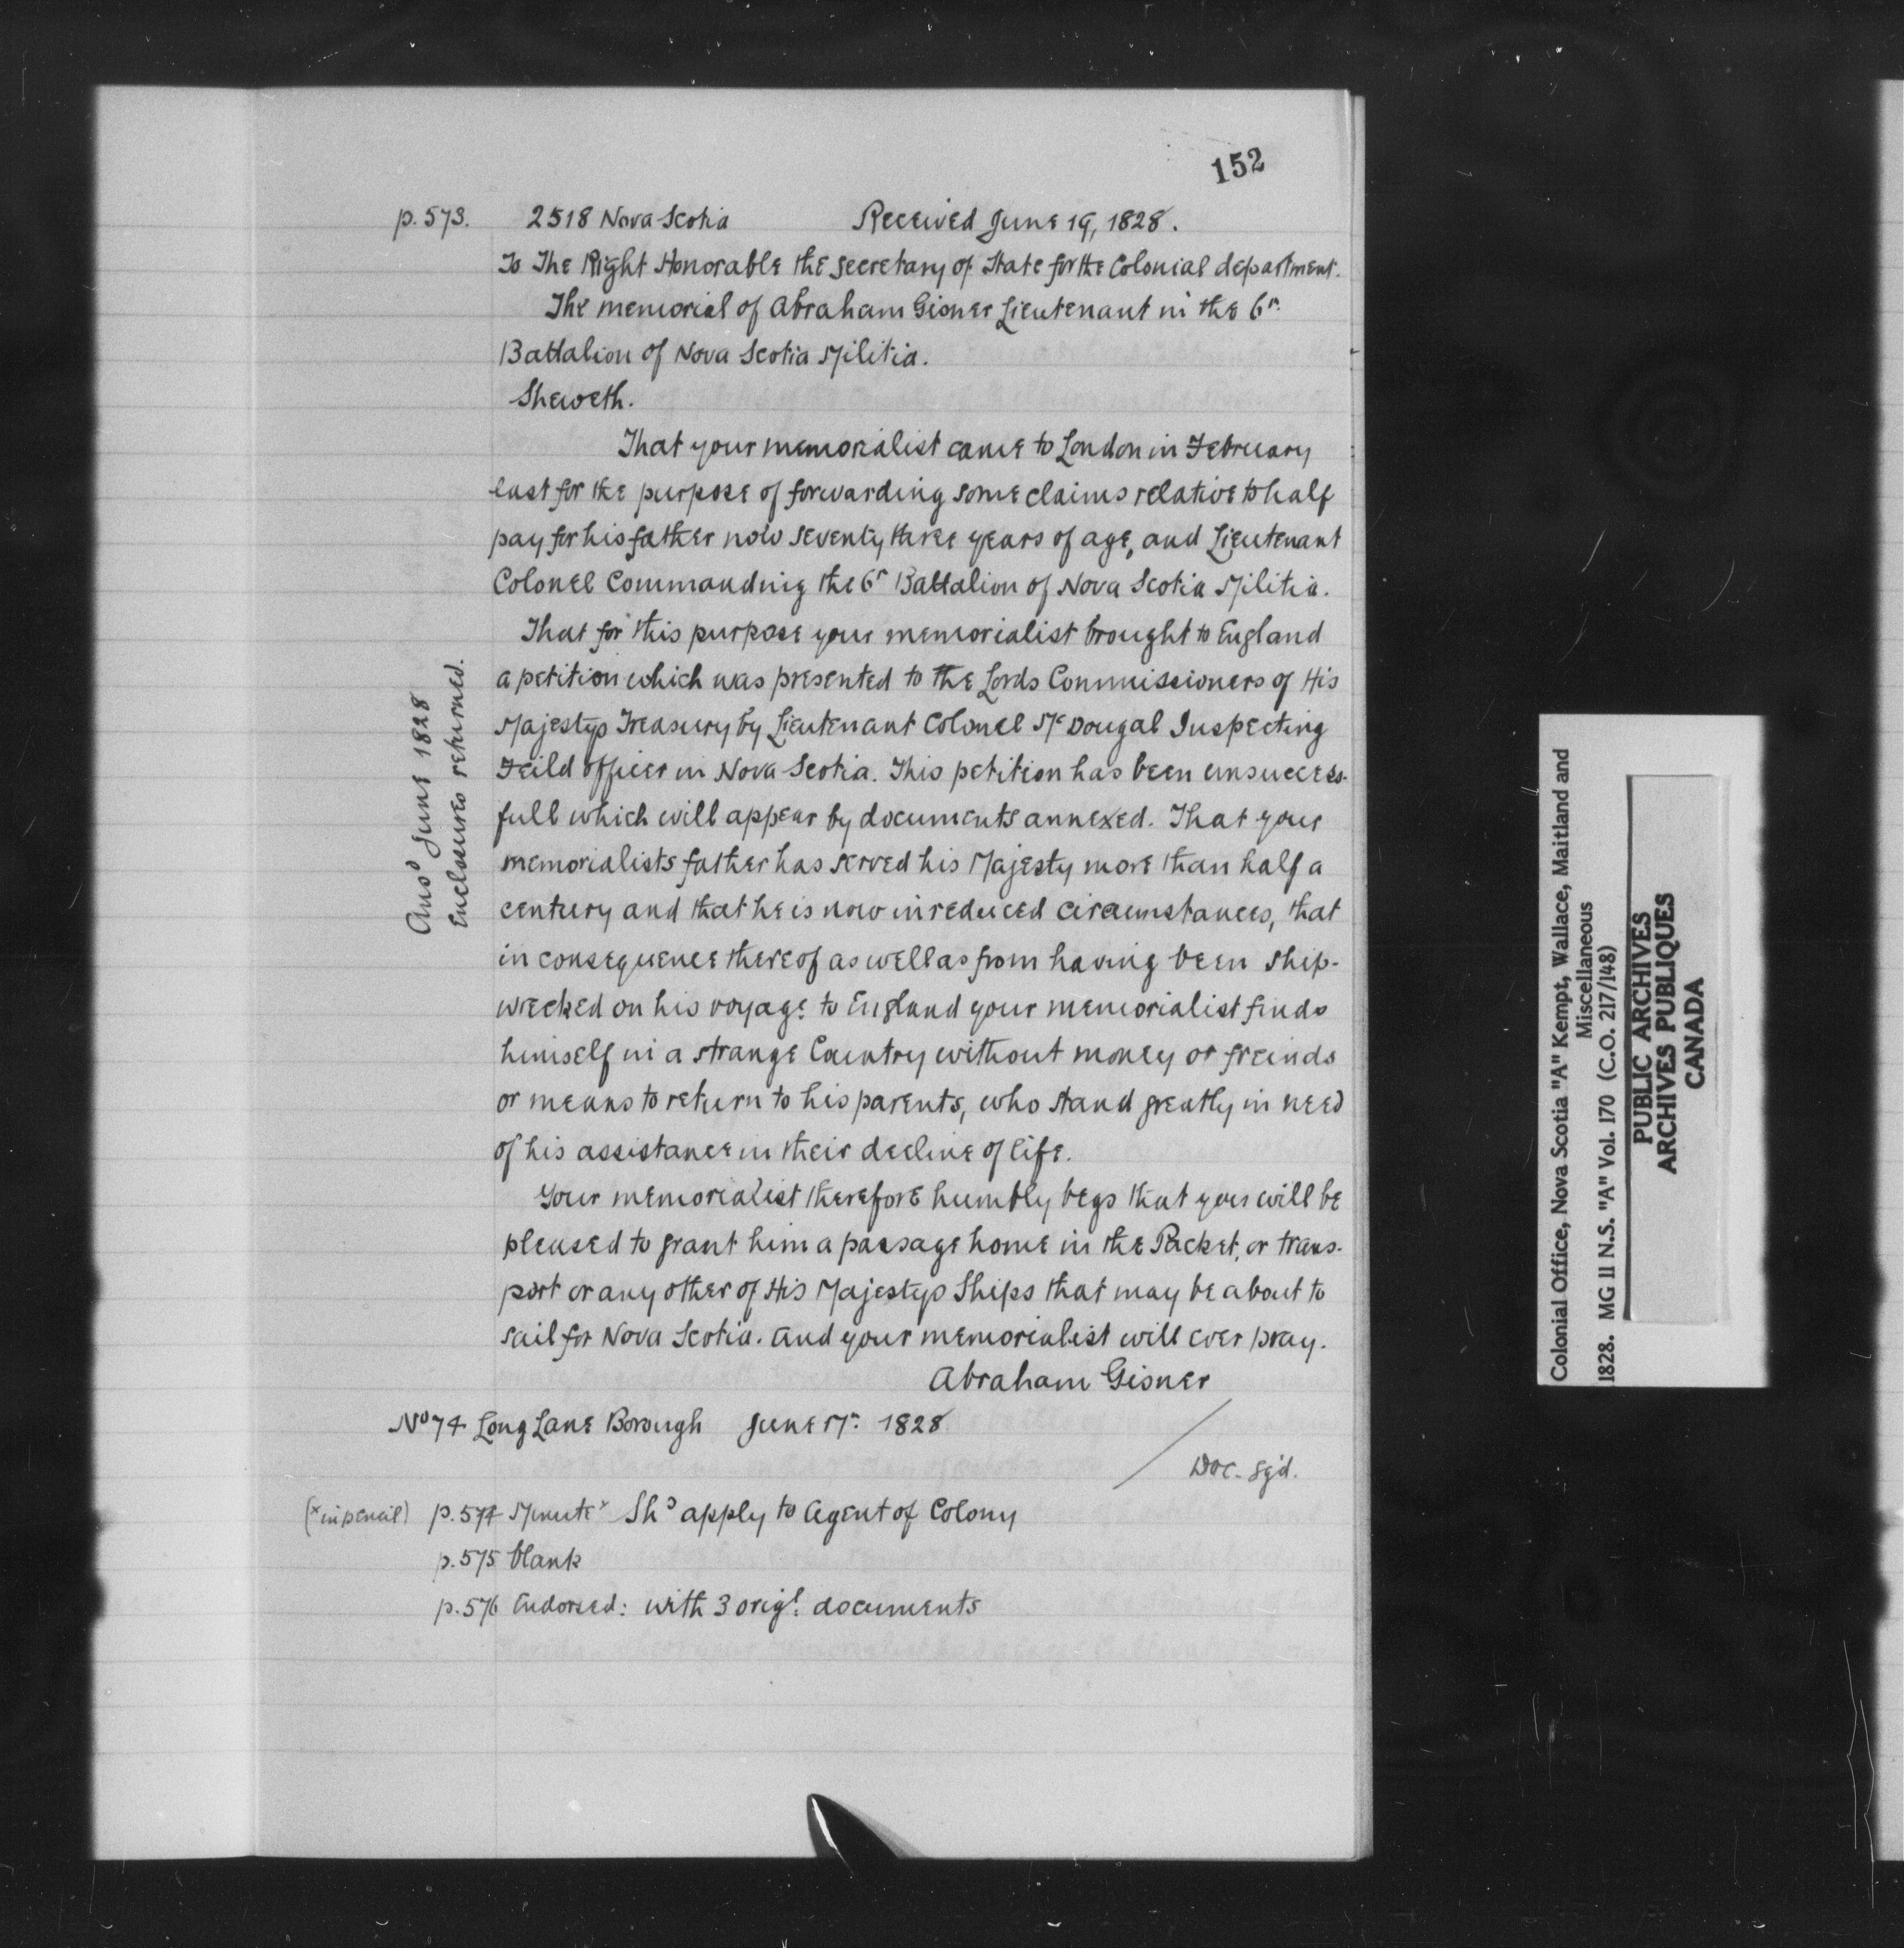 152
p. 573. 2518 Nova Scotia Received June 19, 1828.
To The Right Honorable the Secretary of State for the Colonial department.
The memorial of Abraham Gisner Lieutenant in the 6th
Battalion of Nova Scotia Militia.
Sheweth.
That your memorialist came to London in February
last for the purpose of forwarding some claims relative to half
pay for his father now seventy three years of age, and Lieutenant
Colonel Commanding the 6th Battalion of Nova Scotia Militia.
That for this purpose your memorialist brought to England
a petition which was presented to the Lords Commissioners of His
Majestys Treasury by Lieutenant Colonel Mc Dougal Inspecting
Feild officer in Nova Scotia. This petition has been unsuccess-
full which will appear by documents annexed. That your
memorialists father has served his Majesty more than half a
century and that he is now in reduced circumstances, that
in consequence thereof as well as from having been ship-
wrecked on his voyage to England your memorialist finds
himself in a strange Country without money or freinds
or means to return to his parents, who stand greatly in need
of his assistance in their decline of life.
Your memorialist therefore humbly begs that you will be
pleased to grant him a passage home in the Packet, or trans-
port or any other of His Majestys Ships that may be about to
sail for Nova Scotia. And your memorialist will ever pray.
Abraham Gisner
No 74 Long Lane Borough June 17th 1828
Doc. sg'd.
(x in pencil) p. 574 Minute x Shd apply to Agent of Colony
p. 575 blank
p. 576 Endorsed: with 3 origl. documents
Ansd June 1828
Enclosures returned.
Colonial Office, Nova Scotia "A" Kempt, Wallace, Maitland and
Miscellaneous
1828. MG 11 N.S. "A" Vol. 170 (C.O. 217/148)
PUBLIC ARCHIVES
ARCHIVES PUBLIQUES
CANADA